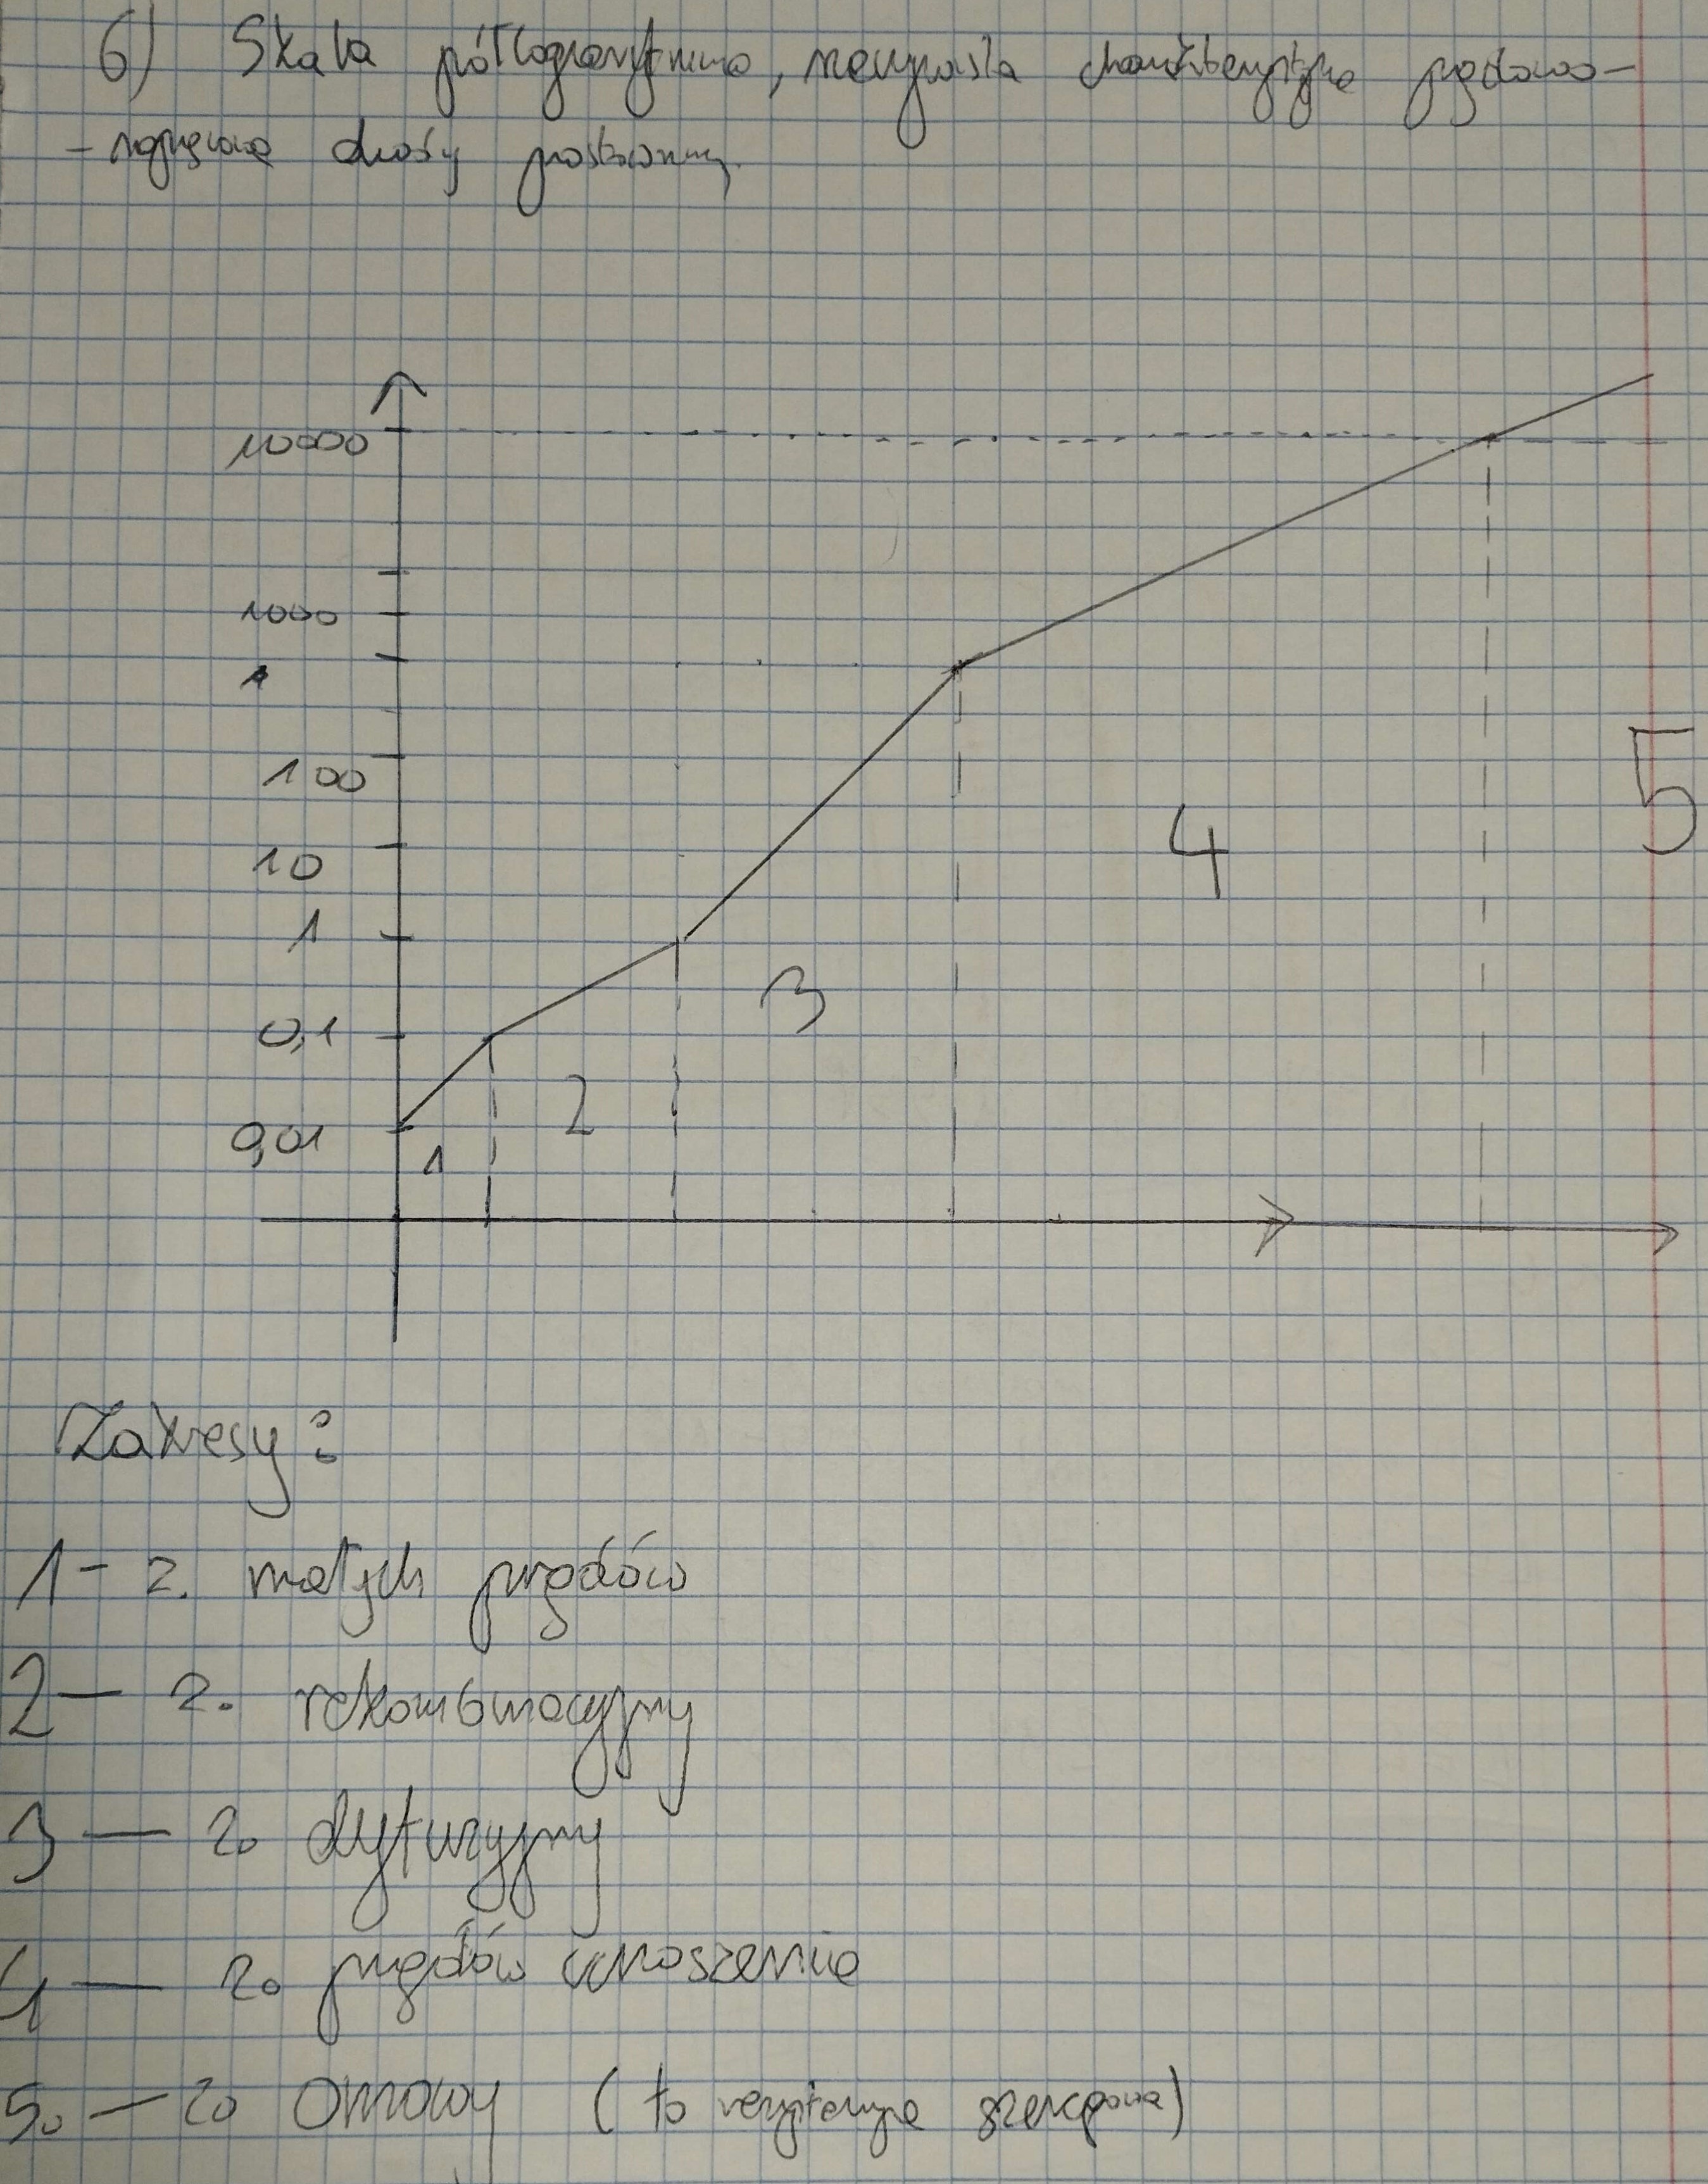 6) Skala półlogarytmiczna, rzeczywista charakterystyka prądowo-
-napięciowa diody prostowniczej.
10000
1000
100
10
1
0,1
0,01
1
2
3
4
5
Zakresy:
1 - z. małych prądów
2 - z. rekombinacyjny
3 - z. dyfuzyjny
4 - z. prądów unoszenia
5. - z. omowy (to rezystancja szeregowa)